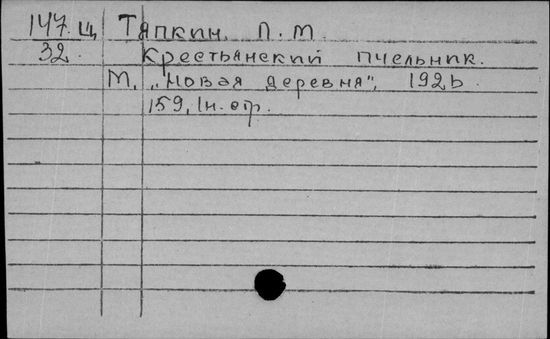 147.Щ Тяпкин. П. М.
32. Крестьянский пчельник.
М. „Новая деревня", 1926.
159, 1н. стр.